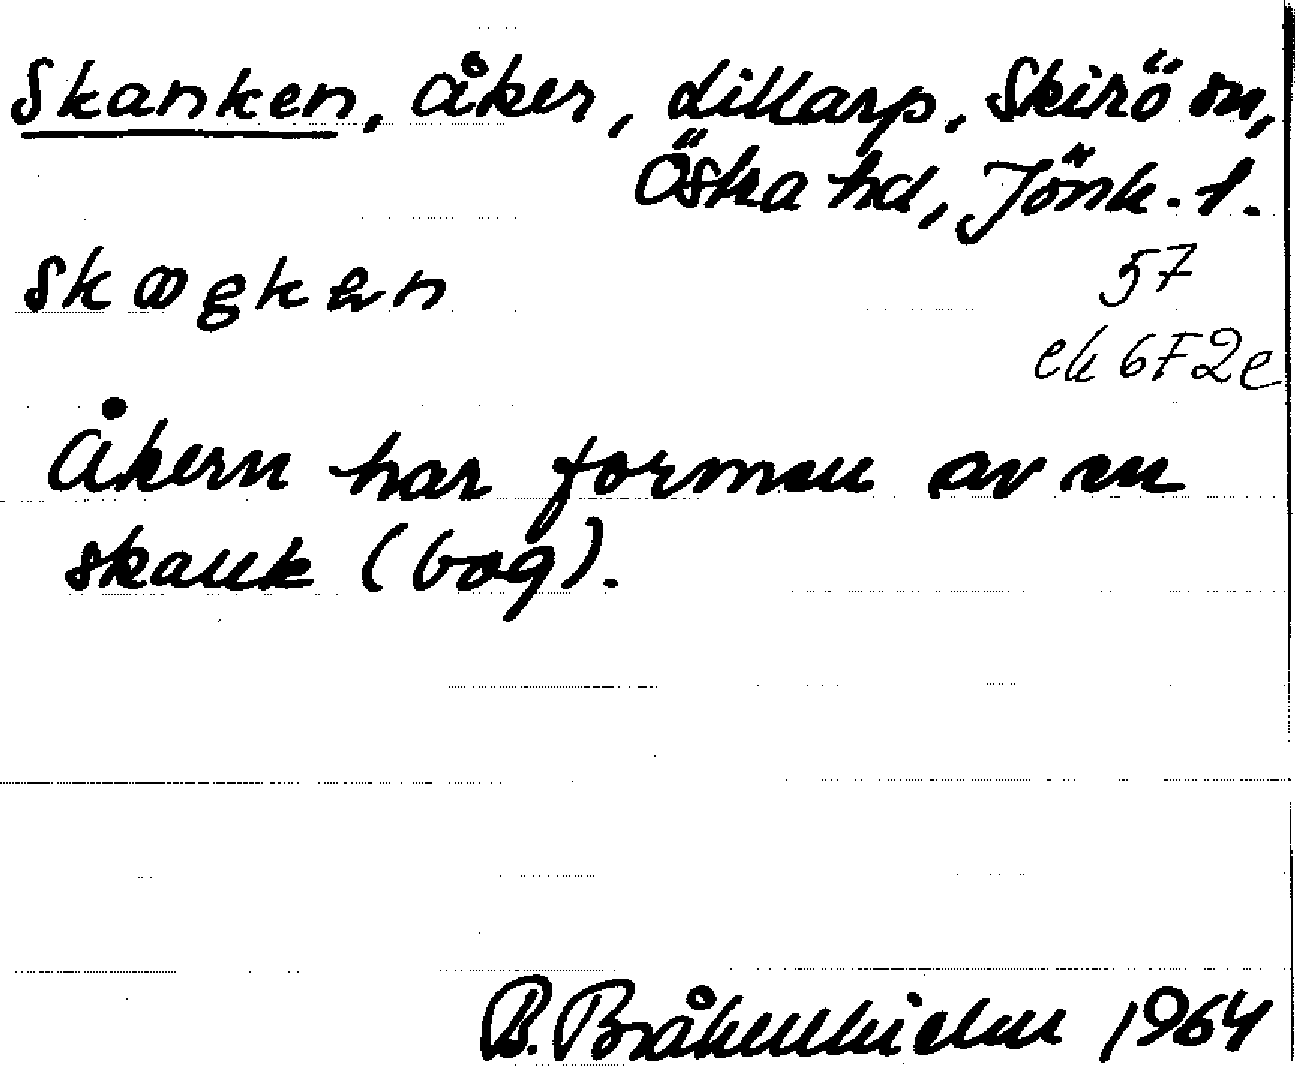 Skanken, åker, Lillarp, Skirö sn,
Östra hd, Jönk. l.
57
ek 6F2e
Åkern har formen av en
skank (bog).
B. Bråkenhielm 1964